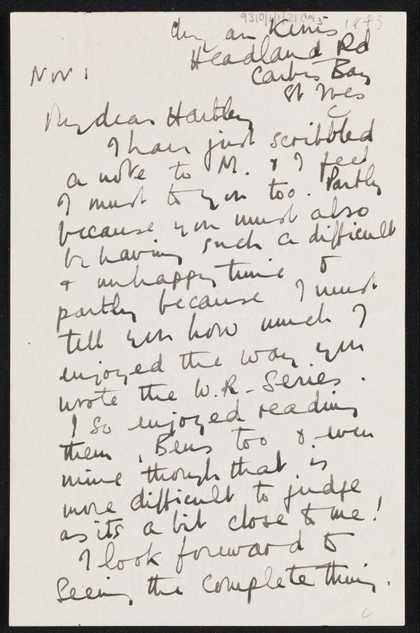 Chy an Kerris
Headland Rd
Carbis Bay
St Ives
Nov 1
My dear Hartley
I have just scribbled
a note to M. & I feel
I must to you too. Partly
because you must also
be having such a difficult
& unhappy time &
partly because I must
tell you how much I
enjoyed the way you
wrote the W.R-Series.
I so enjoyed reading
them, Bens too & even
mine though that is
more difficult to judge
as its a bit close to me!
I look foreward to
Seeing the complete thing.